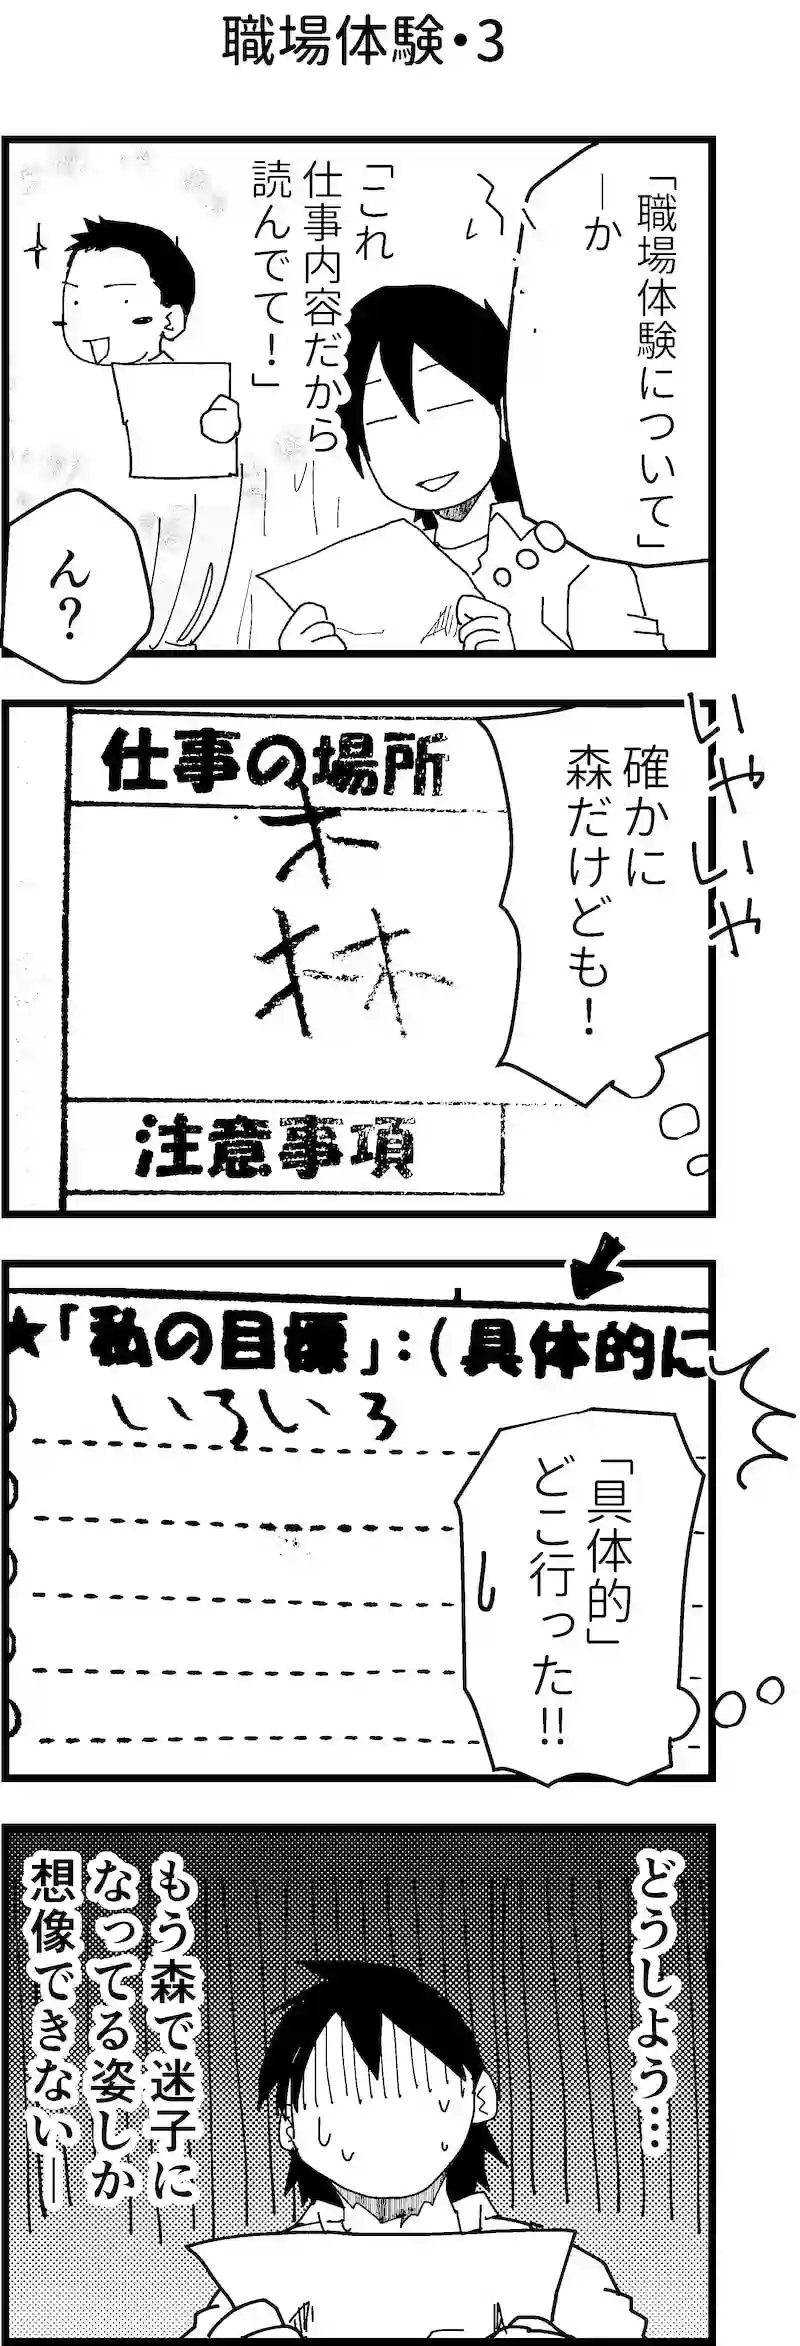 職場体験・3
「職場体験について」
―か
ふ
「これ
仕事内容だから
読んでて！」
ん？
いやいや
確かに
森だけども！
仕事の場所
森
注意事項
★「私の目標」：（具体的に
いろいろ
「具体的」
どこ行った!!
どうしよう…
もう森で迷子に
なってる姿しか
想像できない―